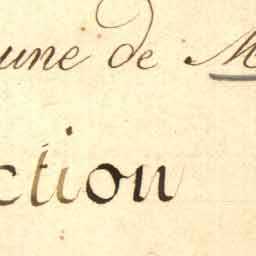 une de M
ction